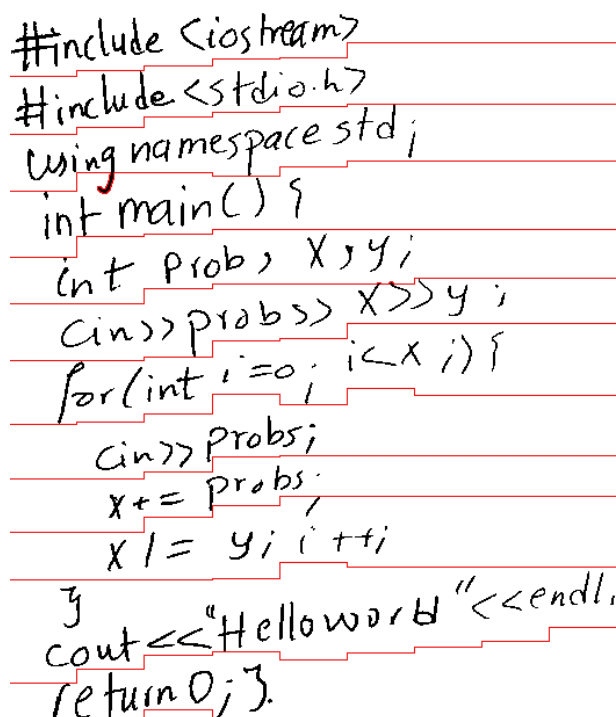 #include <iostream>
#include <stdio.h>
using namespace std;
int main() {
int prob, x, y;
cin>>probs>> x>>y ;
for(int i=0; i<x ;) {
cin>> probs;
x += probs;
x /= y; i ++;
}
cout <<"Helloworld"<<endl;
return 0; }.